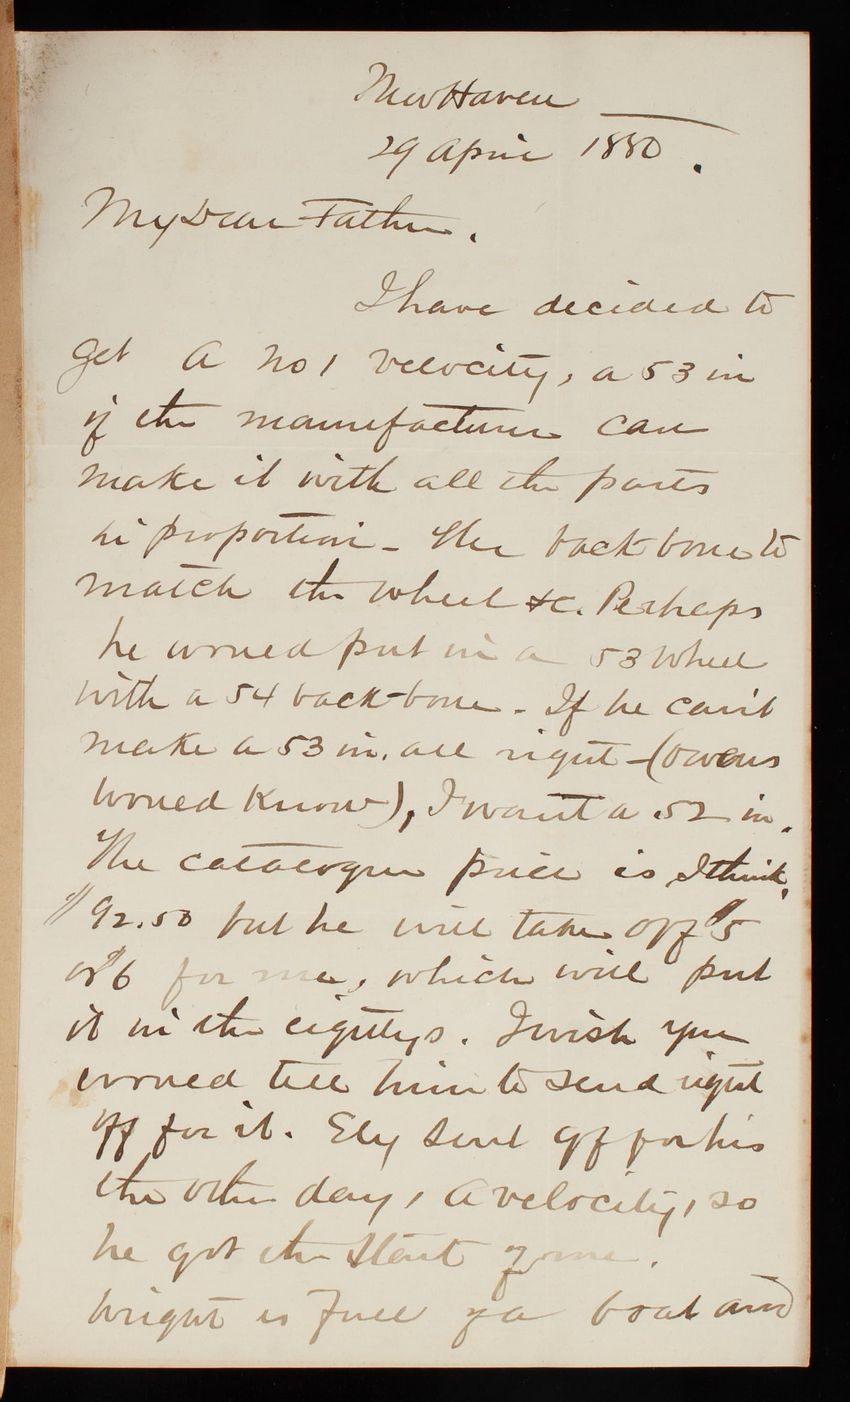 New Haven
29 April 1880.
My Dear Father.
I have decided to
get a No 1 velocity, a 53 in
if the manufacturer can
make it with all the parts
in proportion - the back bone to
match the wheel &c. Perhaps
he would put in a 53 wheel
with a 54 back-bone. If he can't
make a 53 in. all right - (Owens
would know), I want a 52 in.
The catalogue price is I think,
$92.50 but he will take off $5
or $6 for me, which will put
it in the eightys. I wish you
would tell him to send right
off for it. Ely sent off for his
the other day, a velocity, so
he got the start of me.
Wright is full of a boat and